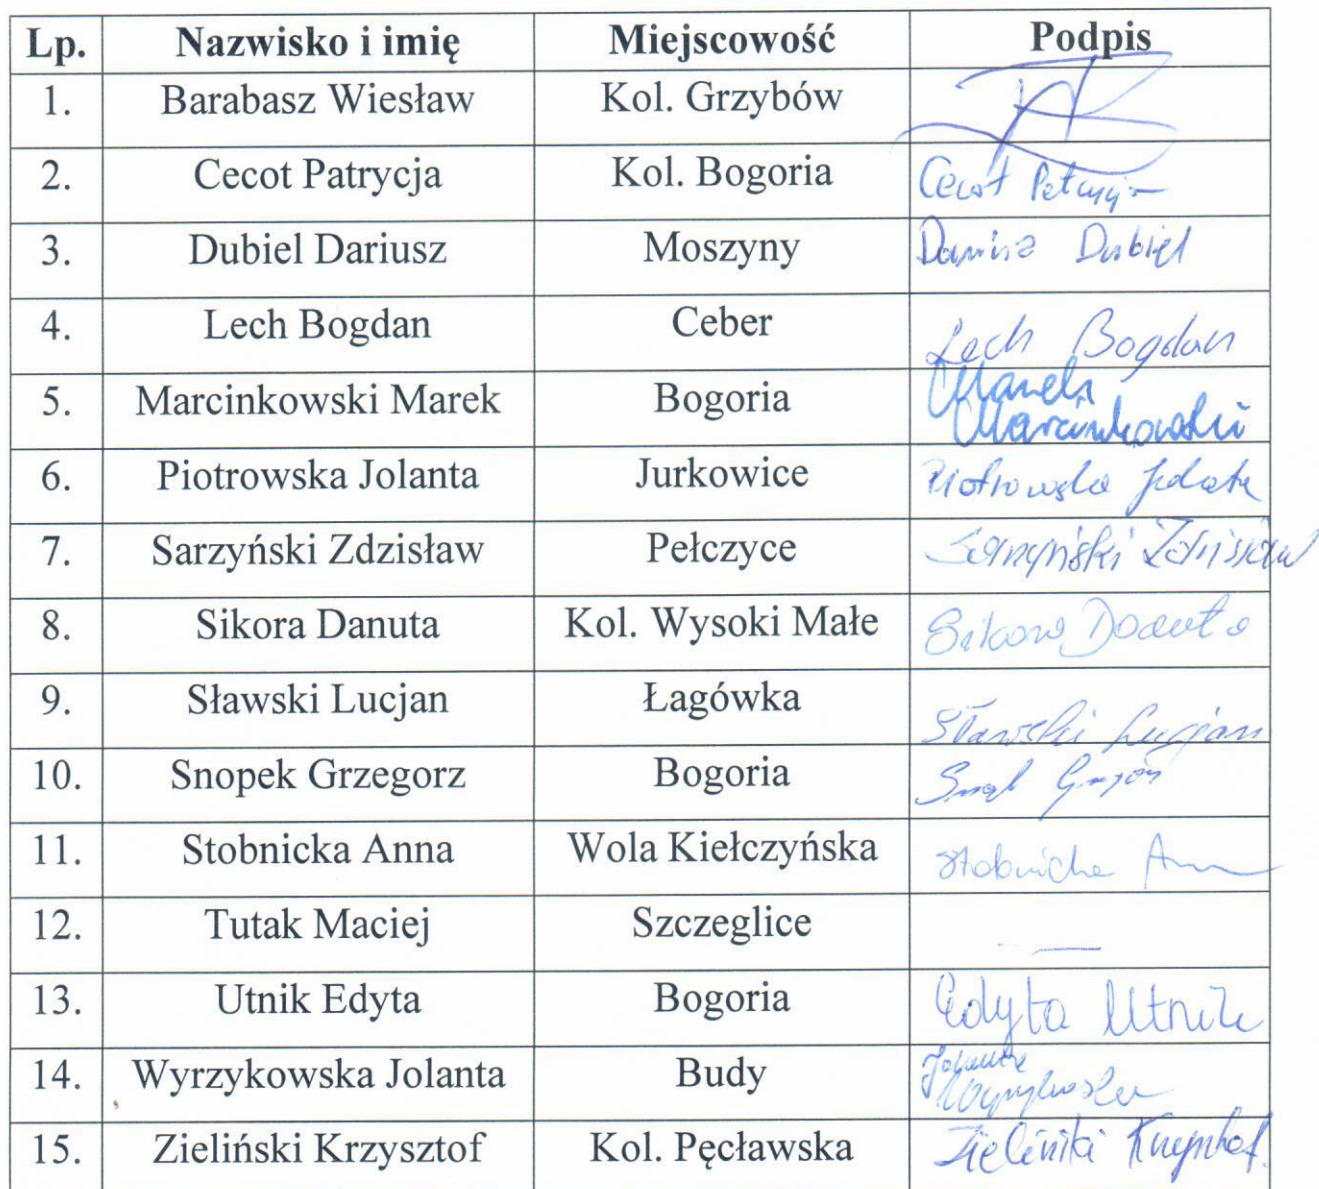 Lp. Nazwisko i imię Miejscowość Podpis
1. Barabasz Wiesław Kol. Grzybów
2. Cecot Patrycja Kol. Bogoria Cecot Patrycja
3. Dubiel Dariusz Moszyny Dariusz Dubiel
4. Lech Bogdan Ceber Lech Bogdan
5. Marcinkowski Marek Bogoria Marek Marcinkowski
6. Piotrowska Jolanta Jurkowice Piotrowska Jolanta
7. Sarzyński Zdzisław Pełczyce Sarzyński Zdzisław
8. Sikora Danuta Kol. Wysoki Małe Sikora Danuta
9. Sławski Lucjan Łagówka Sławski Lucjan
10. Snopek Grzegorz Bogoria
11. Stobnicka Anna Wola Kiełczyńska Stobnicka
12. Tutak Maciej Szczeglice —
13. Utnik Edyta Bogoria Edyta Utnik
14. Wyrzykowska Jolanta Budy Jolanta Wyrzykowska
15. Zieliński Krzysztof Kol. Pęcławska Zieliński Krzysztof